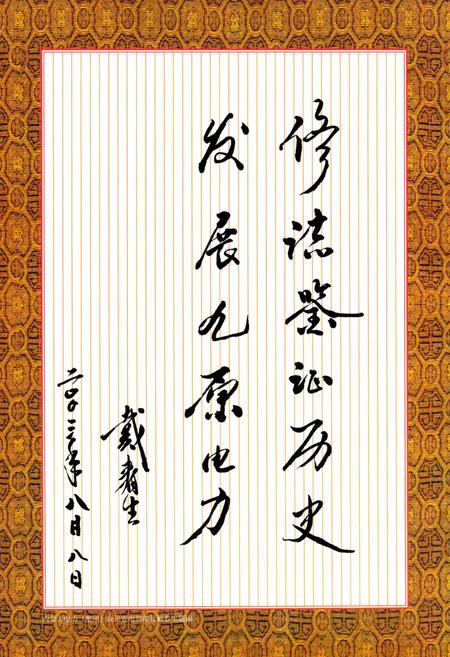 修誌鉴证历史
发展九原电力
戴春生
二〇〇三年八月八日